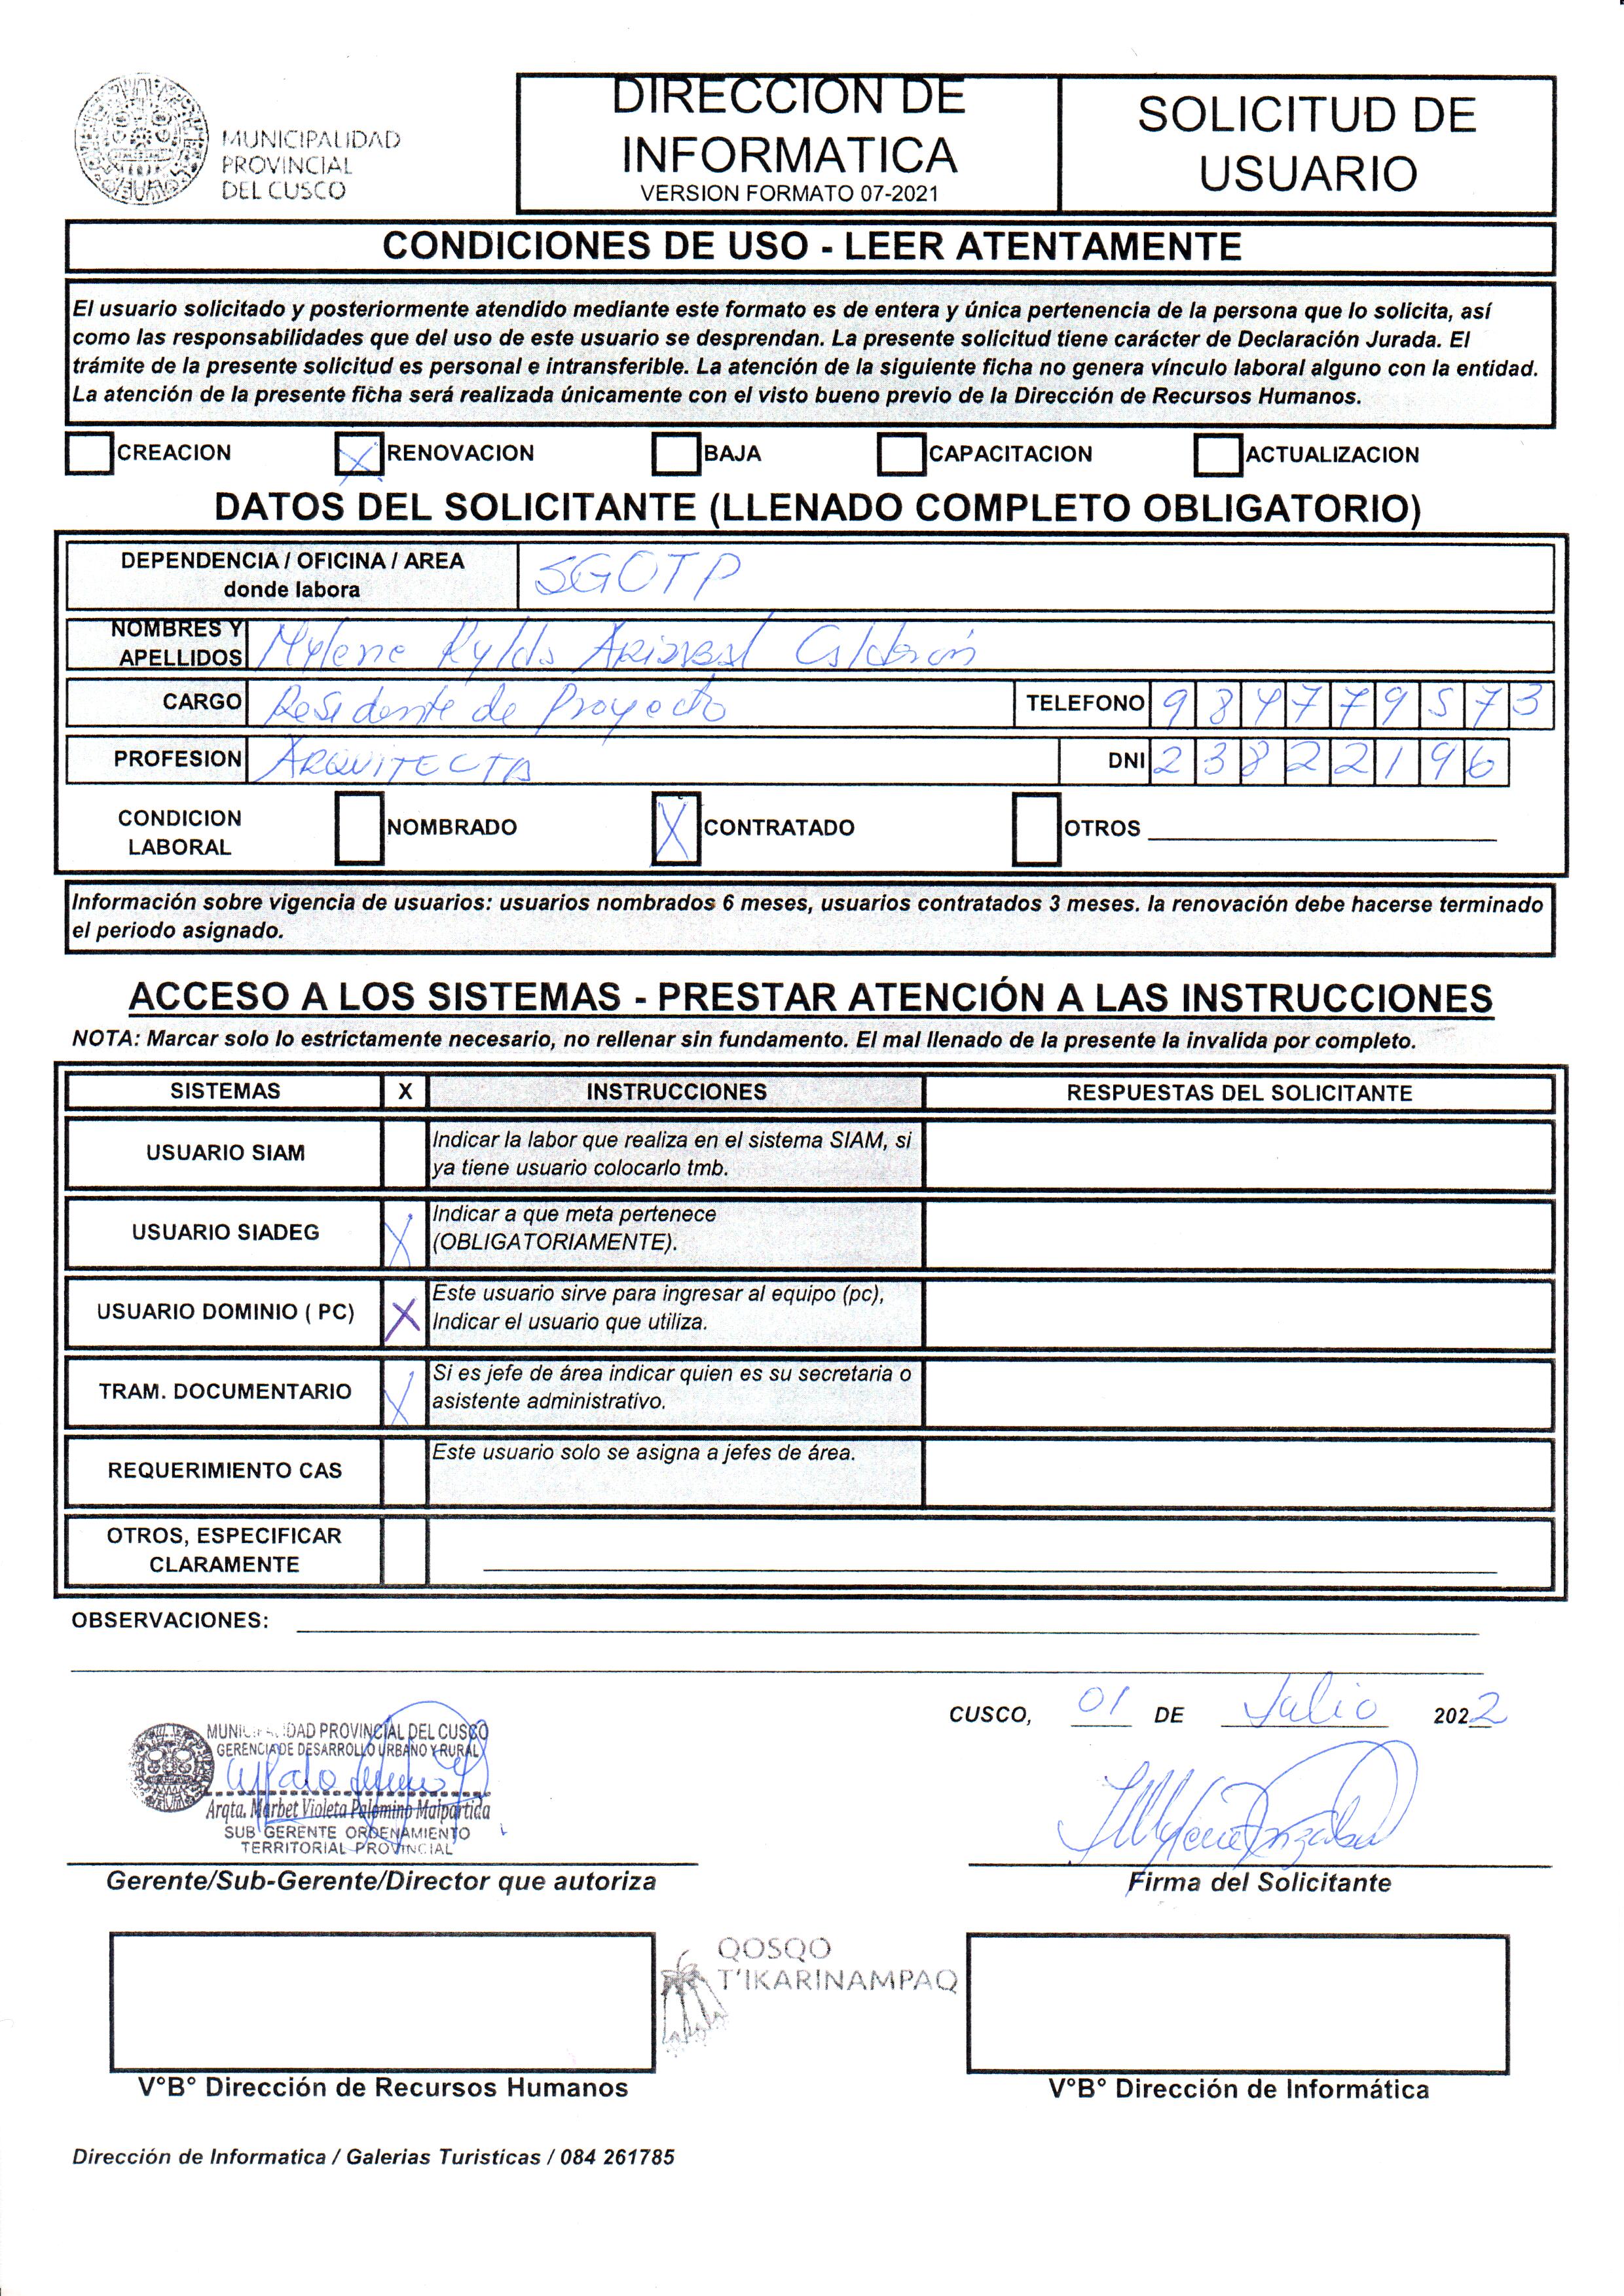 MUNICIPALIDAD
PROVINCIAL
DEL CUSCO
DIRECCION DE
INFORMATICA
VERSION FORMATO 07-2021
SOLICITUD DE
USUARIO
CONDICIONES DE USO - LEER ATENTAMENTE
El usuario solicitado y posteriormente atendido mediante este formato es de entera y única pertenencia de la persona que lo solicita, así
como las responsabilidades que del uso de este usuario se desprendan. La presente solicitud tiene carácter de Declaración Jurada. El
trámite de la presente solicitud es personal e intransferible. La atención de la siguiente ficha no genera vínculo laboral alguno con la entidad.
La atención de la presente ficha será realizada únicamente con el visto bueno previo de la Dirección de Recursos Humanos.
CREACION X RENOVACION BAJA CAPACITACION ACTUALIZACION
DATOS DEL SOLICITANTE (LLENADO COMPLETO OBLIGATORIO)
DEPENDENCIA / OFICINA / AREA
donde labora
SGOTP
NOMBRES Y
APELLIDOS
Mylene Calderón
CARGO Residente de Proyecto TELEFONO 984779573
PROFESION ARQUITECTA DNI 23822196
CONDICION
LABORAL
NOMBRADO X CONTRATADO OTROS
Información sobre vigencia de usuarios: usuarios nombrados 6 meses, usuarios contratados 3 meses. la renovación debe hacerse terminado
el periodo asignado.
ACCESO A LOS SISTEMAS - PRESTAR ATENCIÓN A LAS INSTRUCCIONES
NOTA: Marcar solo lo estrictamente necesario, no rellenar sin fundamento. El mal llenado de la presente la invalida por completo.
SISTEMAS X INSTRUCCIONES RESPUESTAS DEL SOLICITANTE
USUARIO SIAM
Indicar la labor que realiza en el sistema SIAM, si
ya tiene usuario colocarlo tmb.
USUARIO SIADEG X
Indicar a que meta pertenece
(OBLIGATORIAMENTE).
USUARIO DOMINIO ( PC) X
Este usuario sirve para ingresar al equipo (pc),
Indicar el usuario que utiliza.
TRAM. DOCUMENTARIO X
Si es jefe de área indicar quien es su secretaria o
asistente administrativo.
REQUERIMIENTO CAS
Este usuario solo se asigna a jefes de área.
OTROS, ESPECIFICAR
CLARAMENTE
OBSERVACIONES:
CUSCO, 01 DE Julio 2022
MUNICIPALIDAD PROVINCIAL DEL CUSCO
GERENCIA DE DESARROLLO URBANO Y RURAL
Arqta. Marbet Violeta Palomino Malpartida
SUB GERENTE ORDENAMIENTO
TERRITORIAL PROVINCIAL
Gerente/Sub-Gerente/Director que autoriza
Firma del Solicitante
QOSQO
T'IKARINAMPAQ
V°B° Dirección de Recursos Humanos
V°B° Dirección de Informática
Dirección de Informatica / Galerias Turisticas / 084 261785